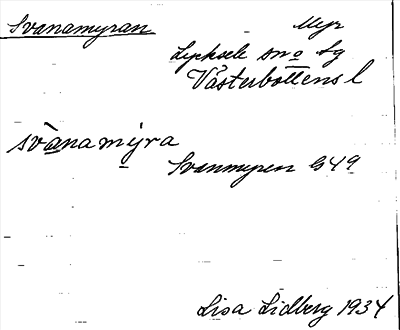 Svanamyran
Myr
Lycksele sn o lg
Västerbottens l
svànamýra
Svanmyren G49
Lisa Lidberg 1934